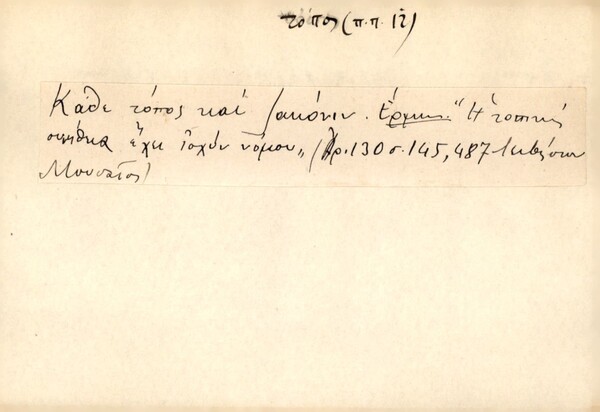 τόπος (π.π. 12)
Κάθε τόπος καί ζακόνιν. Ἑρμην. "Ἡ τοπική
συνήθεια ἔχει ἰσχύν νόμου„ (Ἀρ. 130 σ. 145, 487
Μουσαῖος)